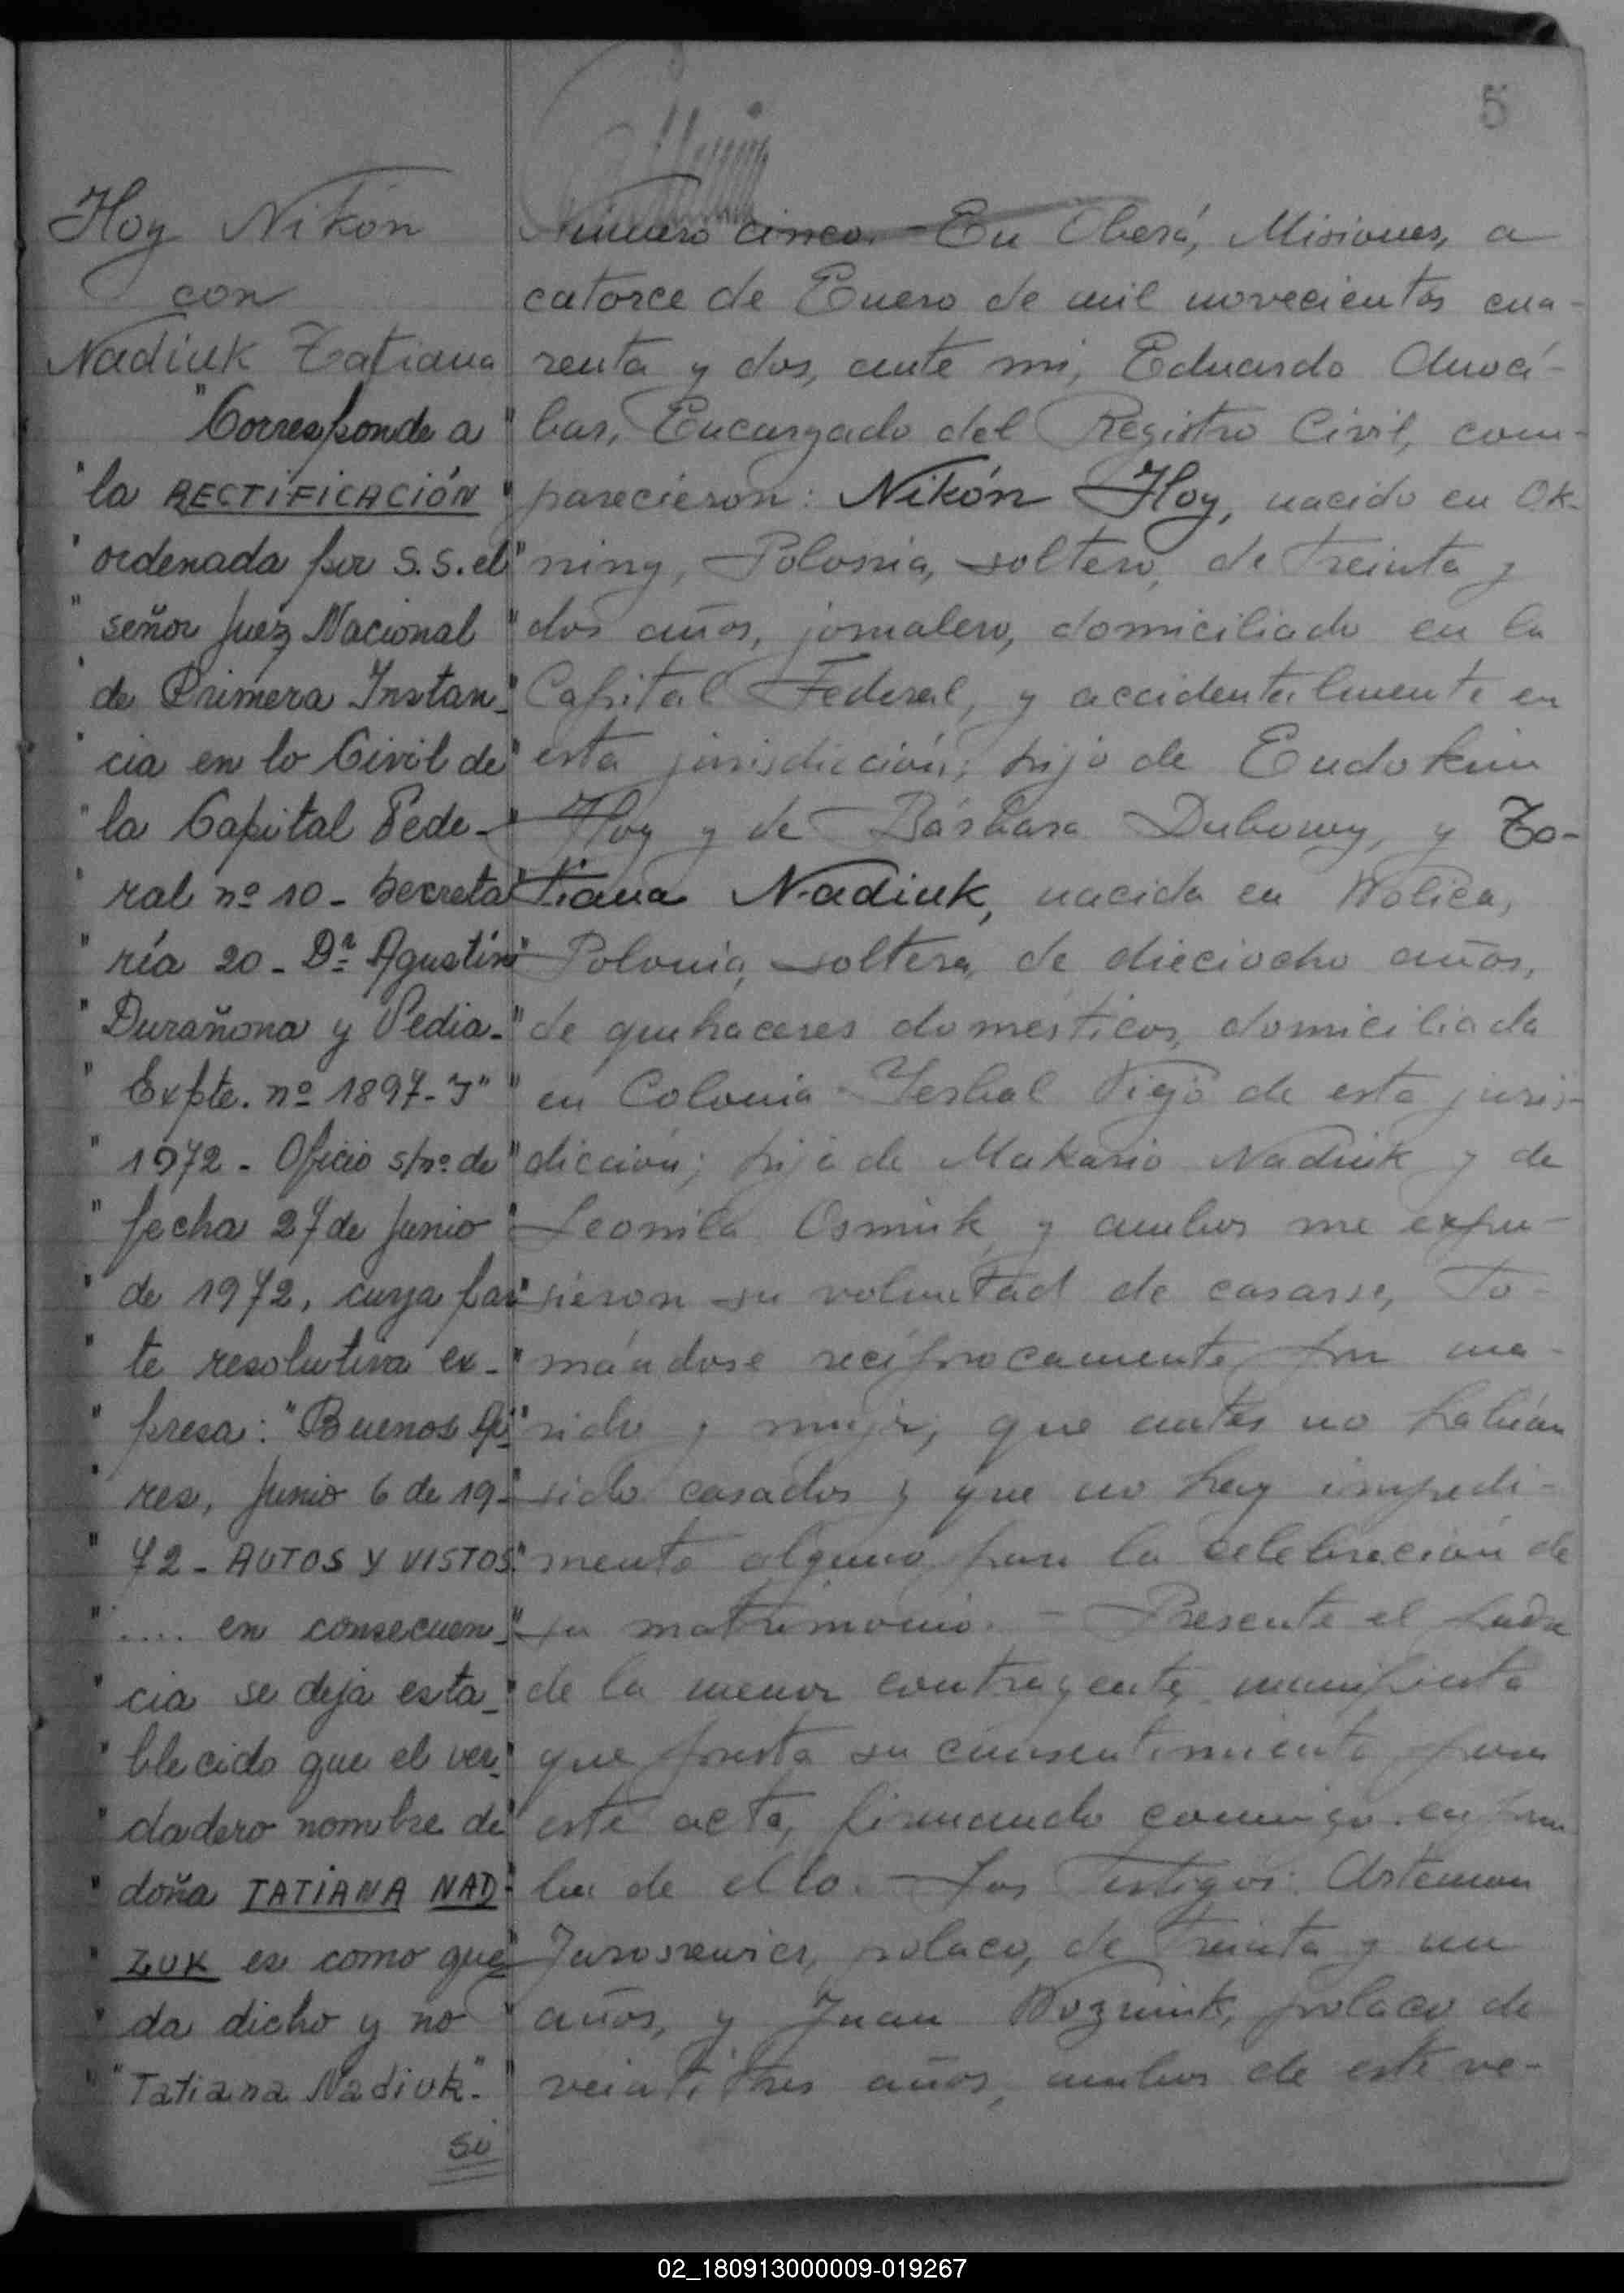 5
Hoy Nikón
con
Nadiuk Tatiana
"Corresponde a "
"la RECTIFICACIÓN "
"ordenada por S.S. el "
"señor Juez Nacional "
"de Primera Instan- "
"cia en lo Civil de "
"la Capital Fede- "
"ral nº 10 - Secreta "
"ría 20 - Dr. Agustín "
"Durañona y Vedia- "
"Expte. nº 1897-J" "
"1972 - Oficio s/nº de "
"fecha 27 de Junio "
"de 1972, cuya par "
"te resolutiva ex- "
"presa: "Buenos Ai- "
"res, Junio 6 de 19- "
"72 - AUTOS Y VISTOS: "
".... en consecuen- "
"cia se deja esta- "
"blecido que el ver- "
"dadero nombre de "
"doña TATIANA NAD- "
"ZUK es como que "
"da dicho y no "
"Tatiana Nadiuk". "
Número cinco. - En Oberá, Misiones, a
catorce de Enero de mil novecientos cua-
renta y dos, ante mi, Eduardo
Encargado del Registro Civil, com-
parecieron: Nikón Hoy, nacido en Ok-
ning, Polonia, soltero, de treinta y
dos años, jornalero, domiciliado en la
Capital Federal, y accidentalmente en
esta jurisdicción; hijo de Eudokim
Hoy y de Bárbara Dubowy, y Ta-
tiana Nadiuk, nacida en Wolica,
Polonia, soltera, de dieciocho años,
de quehaceres domésticos, domiciliada
en Colonia Yerbal Viejo de esta juris-
dicción; hija de Makario Nadiuk y de
Leonila Osmiuk, y ambos me expu-
sieron su voluntad de casarse, to-
mándose recíprocamente por ma-
rido y mujer, que antes no habían
sido casados y que no hay impedi-
mento alguno para la celebración de
su matrimonio. - Presente el padre
de la menor contrayente, manifiesta
que presta su consentimiento para
este acto, firmando conmigo en prue
ba de ello. - Los testigos: Artemon
polaco, de treinta y un
años, y Juan Wozniuk, polaco de
veintitres años, ambos de este ve-
02_180913000009-019267